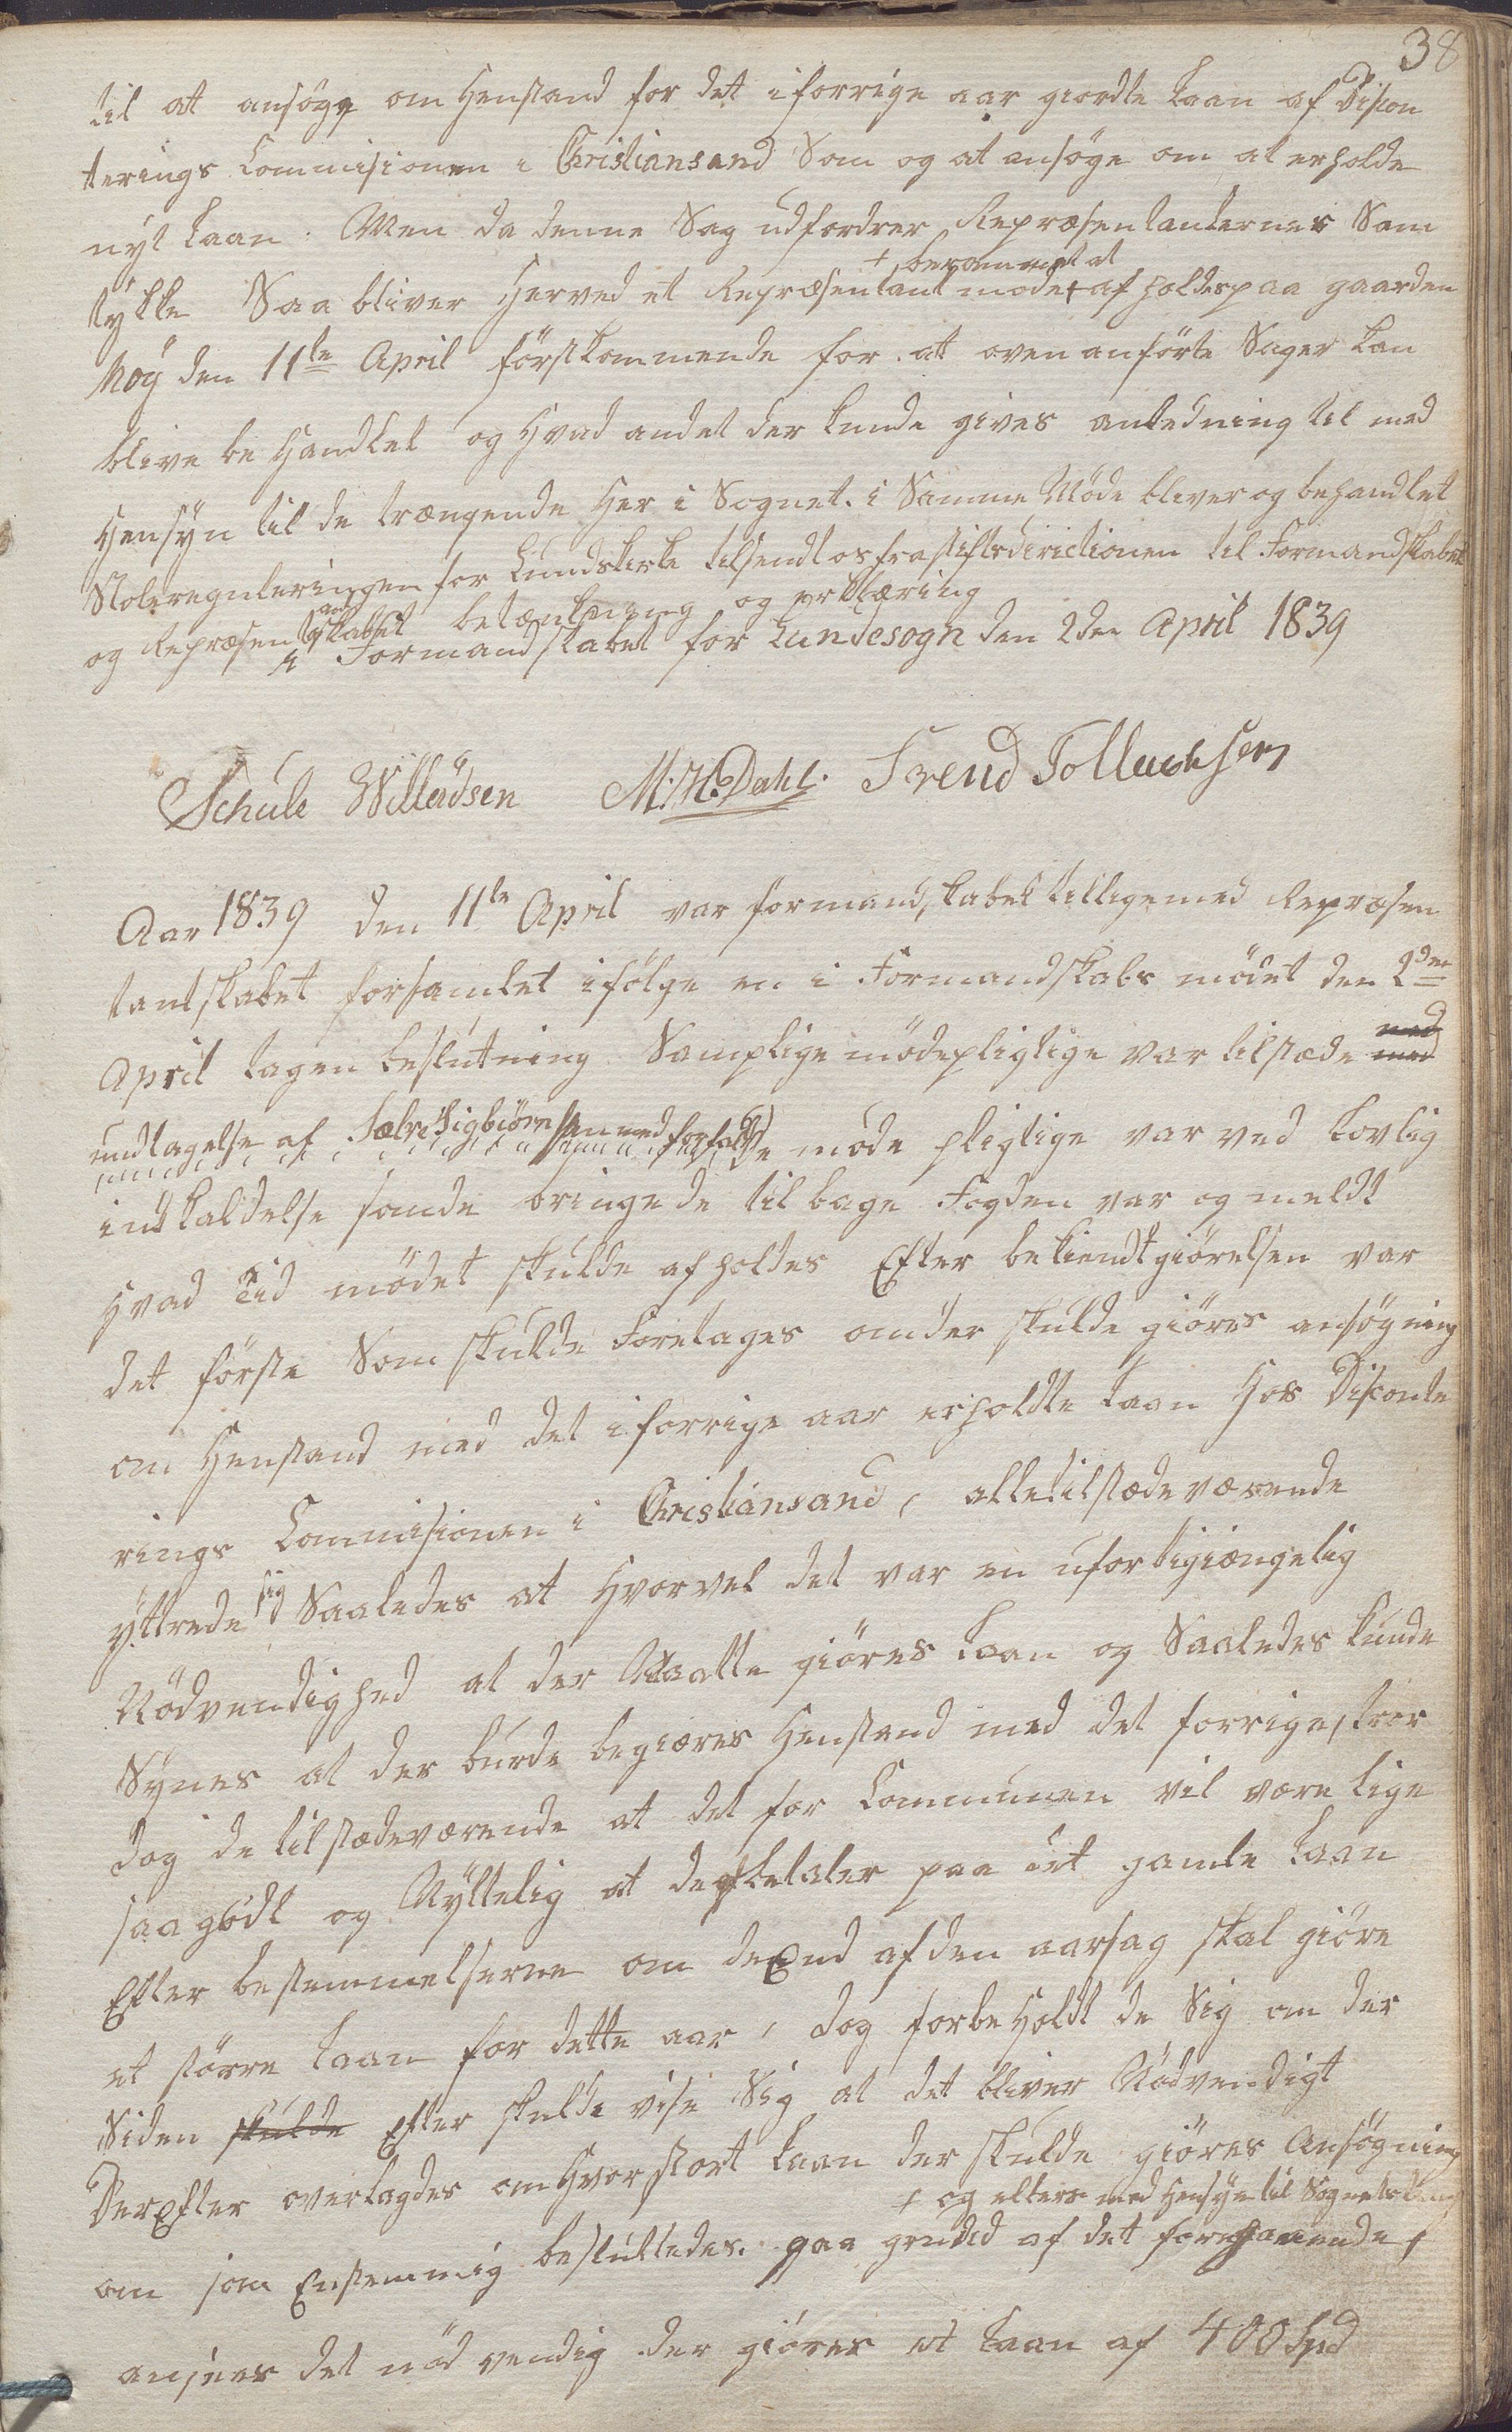 38
til at ansøge om Henstand for det i forrige aar giordte Laan af Discon
terings Commisionen i Christiansand Som og at ansøge om at erholde
nyt Laan. Men da denne Sag udfordrer Repræsentanternes Sam
+ berammet at
tykke Saa bliver Herved et Repræsentant møde + afholdes paa gaarden
Moy den 11te April førstkommende for at oven anførte Sager kan
blive be Handlet og Hvad andet der kunde gives anledning til med
Hensyn til de trængende Her i Sognet. i Samme Møde bliver og behandlet
Skolereguleringen for Lundskirke tilsendt os fra stiftsdirectionen til Formandskabet
og Repræsentantskabet betænkning og erklæring
i Formandskabet for Lundesogn den 2den April 1839
Schule Willadsen M. H. Dahl. Trend Tollachsen
Aar 1839 den 11te April var formandskabet tilligemed Repræsen
tantskabet forsamlet ifølge en i Formandskabs mødet den 2den
April tagen beslutning Samplige mødepligtige var tilstæde med
undtagelse af Salve Sigbiørnsen med forfald de møde pligtige var ved Lovlig
indkaldelse som de bringede tilbage Fogden var og meldt
Hvad Tid mødet skulde afholdes Efter bekiendtgiørelsen var
det første Som skulde Foretages om der skulde giøres ansøgning
om Henstand med det i forrige aar erholdte Laan Hos Disconte
rings Commisionen i Christiansand, alle tilstædeværende
yttrede sig Saaledes at Hvorvel det var en uforbigiængelig
Nødvendighed at der Maatte giøres Laan og Saaledes kunde
Synes at der burde begiæres Henstand med det forrige, troer
dog de tilstædeværende at det for Communen vil være lige
saa godt og Nyttelig at der betaler paa det gamle Laan
Efter bestemmelserne om de End af den aarsag skal giøre
et større Laan for dette aar, dog forbeHoldt de Sig om der
Siden skulde Efter skulde vise Sig at det bliver Nødvendigt
DerEfter overlagdes om Hvor stort Laan der skulde giøres Ansøgning
+ og ellers med Hensyn til Sognets
om som Enstemmig besluttedes. paa grund af det forrhaanende +
ansees det nødvendig der giøres et Laan af 400 Spd